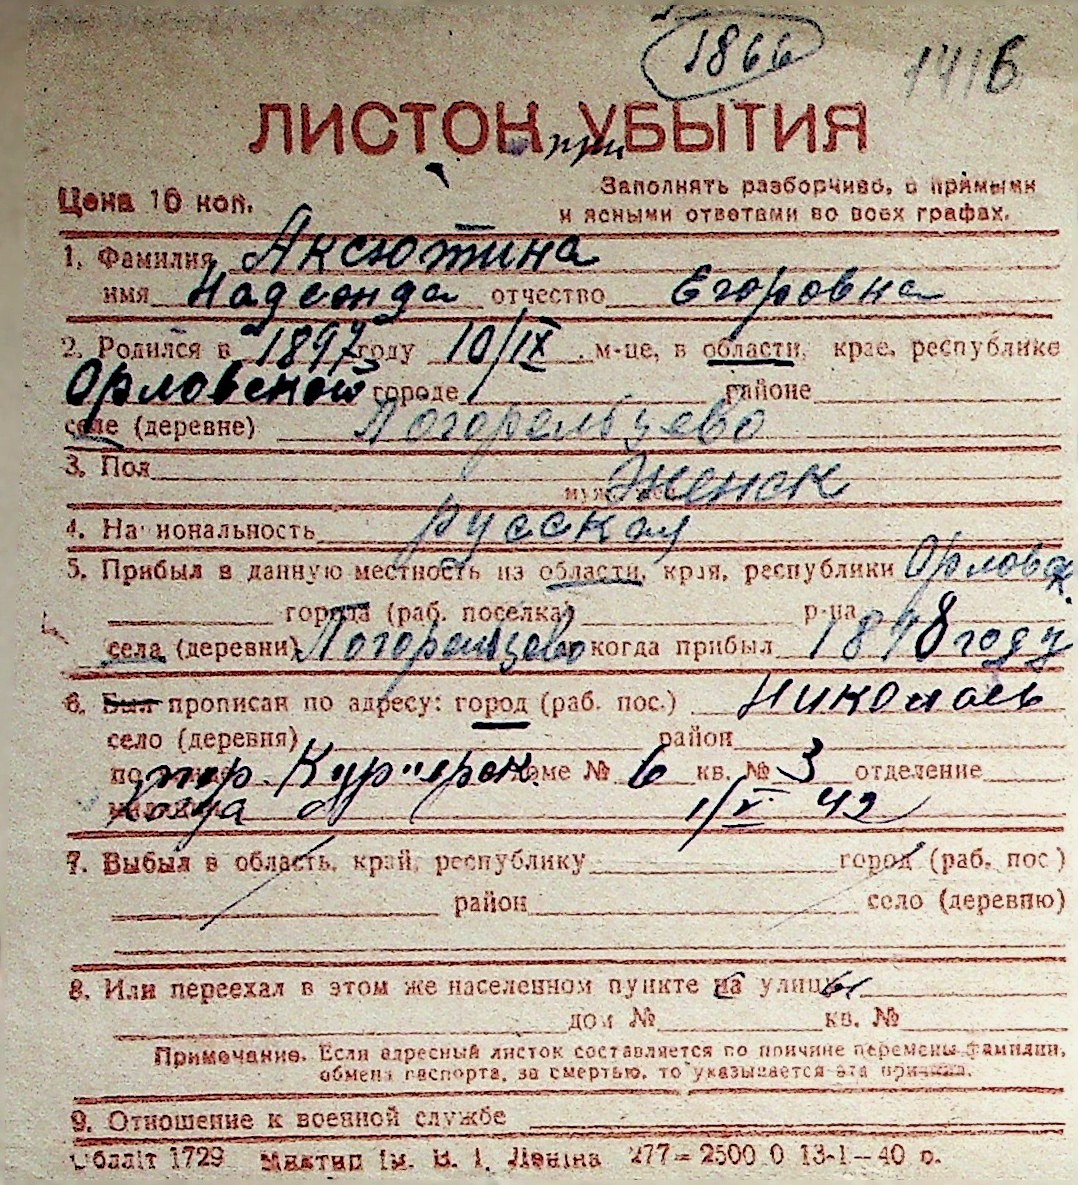 1866 1416
ЛИСТОК УБЫТИЯ
при
Цена 10 коп. Заполнять разборчиво, с прямыми
и ясными ответами во всех графах.
1. Фамилия Аксютина
имя Надежда отчество Егоровна
2. Родился в 1897 году 10/IX м-це, в области, крае, республике
Орловской городе районе
селе (деревне) Погорельцево
3. Пол Женск
4. Национальность русская
5. Прибыл в данную местность из области, края, республики Орловск.
города (раб. поселка) р-на
села (деревни) Погорельцево когда прибыл 1898 году
6. Был прописан по адресу: город (раб. пос.) Никополь
село (деревня) район
пер Курьерск. доме № 6 кв. № 3 отделение
когда 1/V 42
7. Выбыл в область, край, республику город (раб. пос)
район село (деревню)
8. Или переехал в этом же населенном пункте на улицу
дом № кв. №
Примечание. Если адресный листок составляется по причине перемены фамилии,
обмена паспорта, за смертью, то указывается эта причина.
9. Отношение к военной службе
Облліт 1729 Миктип ім. В. І. Леніна 277—2500 0 13-1—40 р.